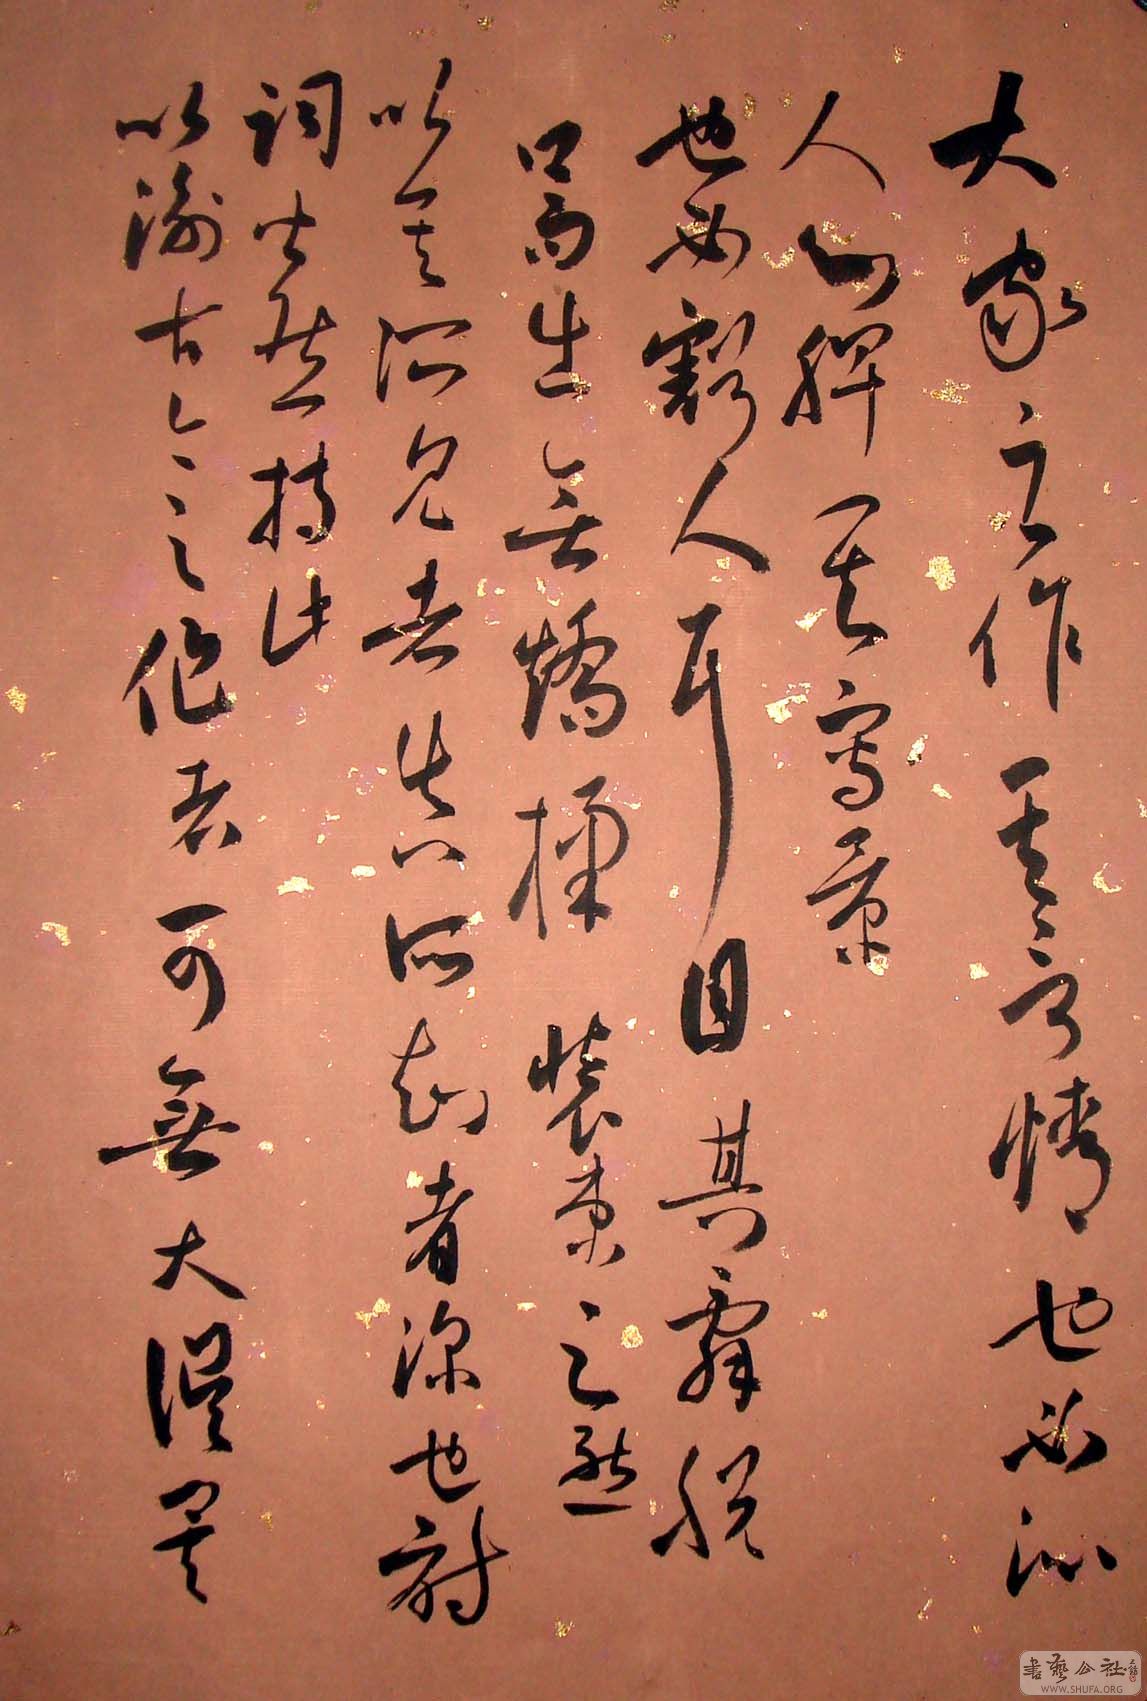 大家之作其言情也必沁
人心脾其寫景
也必豁人耳目其辭脫
口而出無矯揉裝束之態
以其所見者真所知者深也詩
詞皆然持此
以衡古今之作者可無大誤矣
書藝公社
WWW.SHUFA.ORG